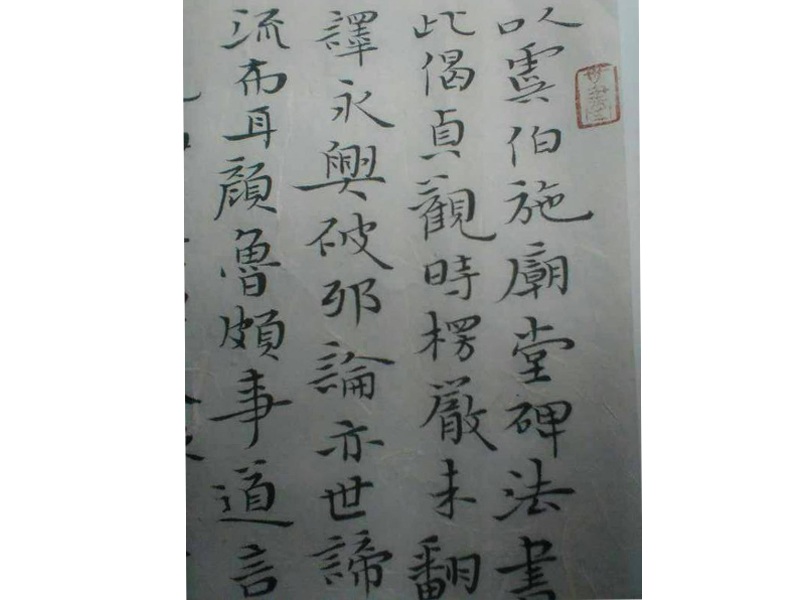 以虞伯施廟堂碑法書
此偈貞觀時楞嚴未翻
譯永興破邪論亦世諦
流布耳顏魯頗事道言